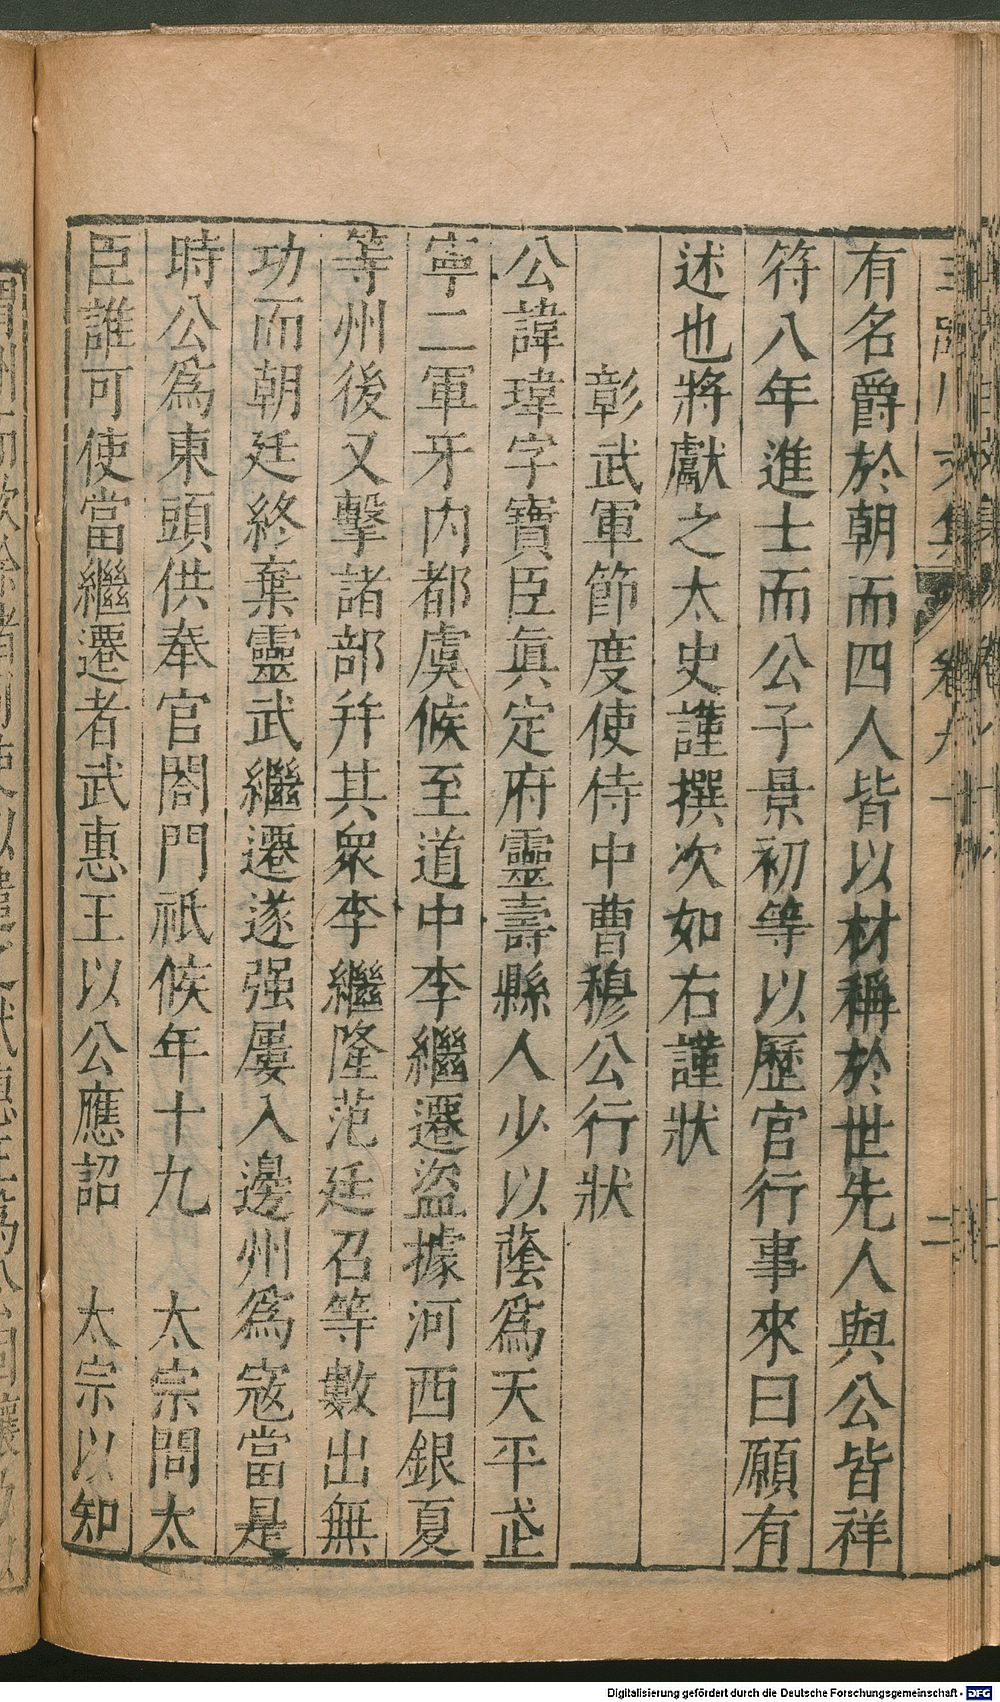 有名爵於朝而四人皆以材稱於世先人與公皆祥
符八年進士而公子景初等以歷官行事來曰願有
述也將獻之太史謹撰次如右謹狀
彰武軍節度使侍中曹穆公行狀
公諱瑋字寶臣眞定府靈壽縣人少以蔭爲天平武
寧二軍牙內都虞候至道中李繼遷盜據河西銀夏
等州後又擊諸部幷其衆李繼隆范廷召等數出無
功而朝廷終棄靈武繼遷遂强屢入邊州爲寇當是
時公爲東頭供奉官閤門祇候年十九 太宗問太
臣誰可使當繼遷者武惠王以公應詔 太宗以知
卷九
二
Digitalisierung gefördert durch die Deutsche Forschungsgemeinschaft - DFG